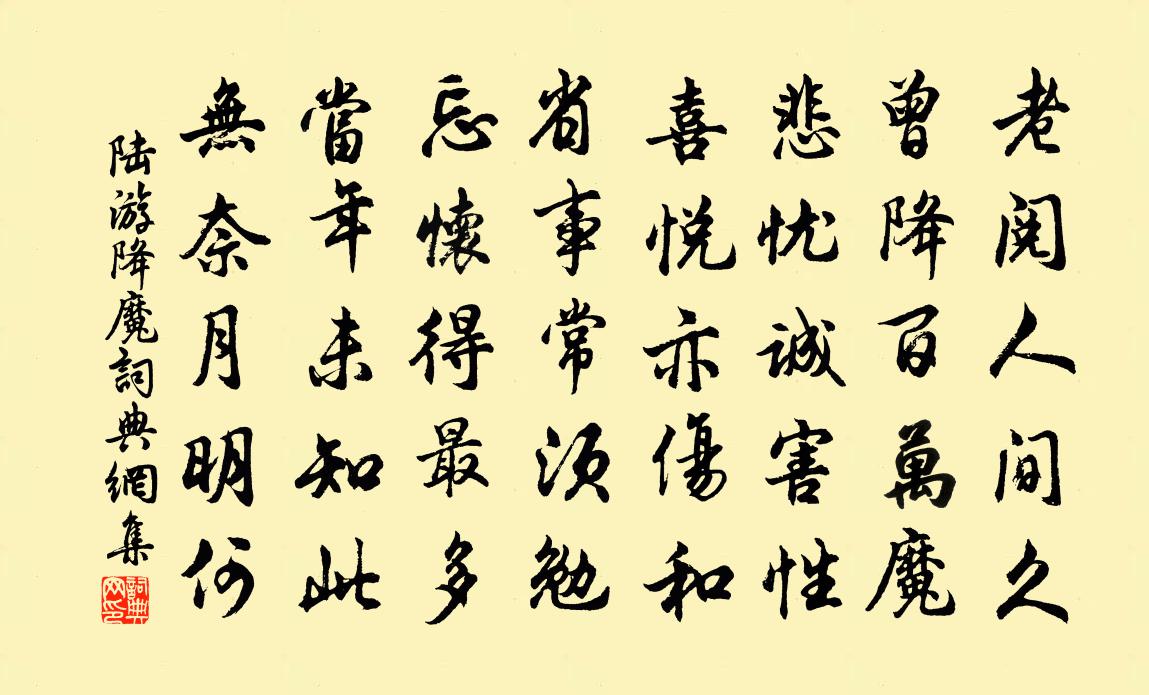 老閱人間久
曾降百萬魔
悲忧誠害性
喜悅亦傷和
省事常須勉
忘懷得最多
當年未知此
無奈月明何
陆游降魔詞典網集
詞典網印